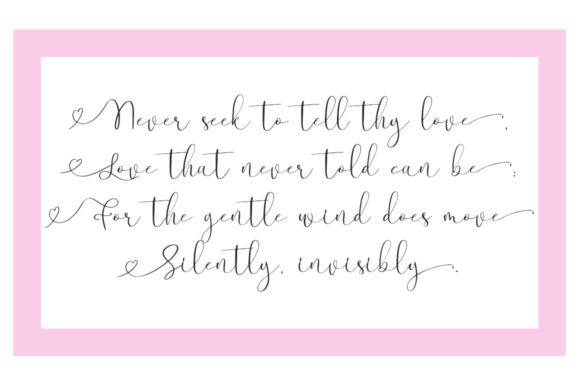 Never seek to tell thy love,
Love that never told can be;
For the gentle wind does move
Silently, invisibly.